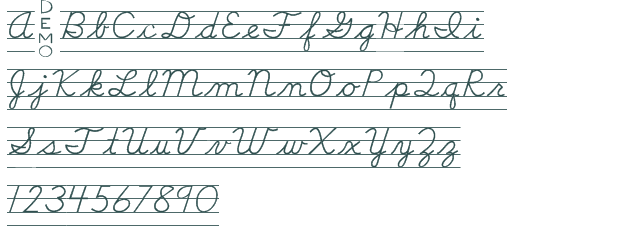 A DEMO BbCcDdEeFfGgHhIi
JjKkLlMmNnOoPpQqRr
SsTtUuVvWwXxYyZz
1234567890